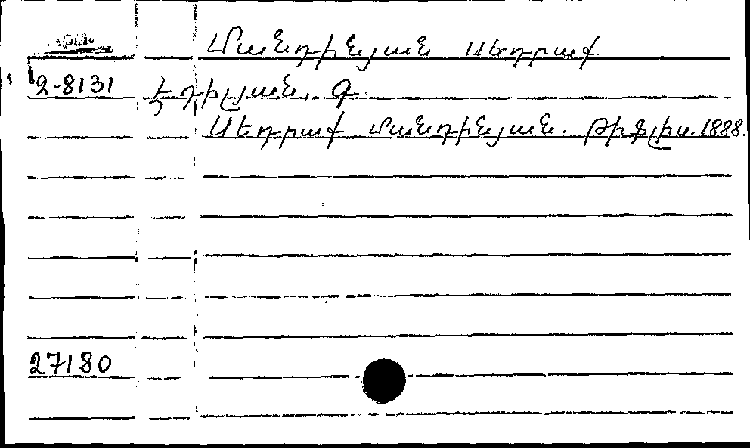 Մանդինյան Սեդրակ
2-8131 Էդիլյան, Գ.
Սեդրակ Մանդինյան. Թիֆլիս. 1888.
27180